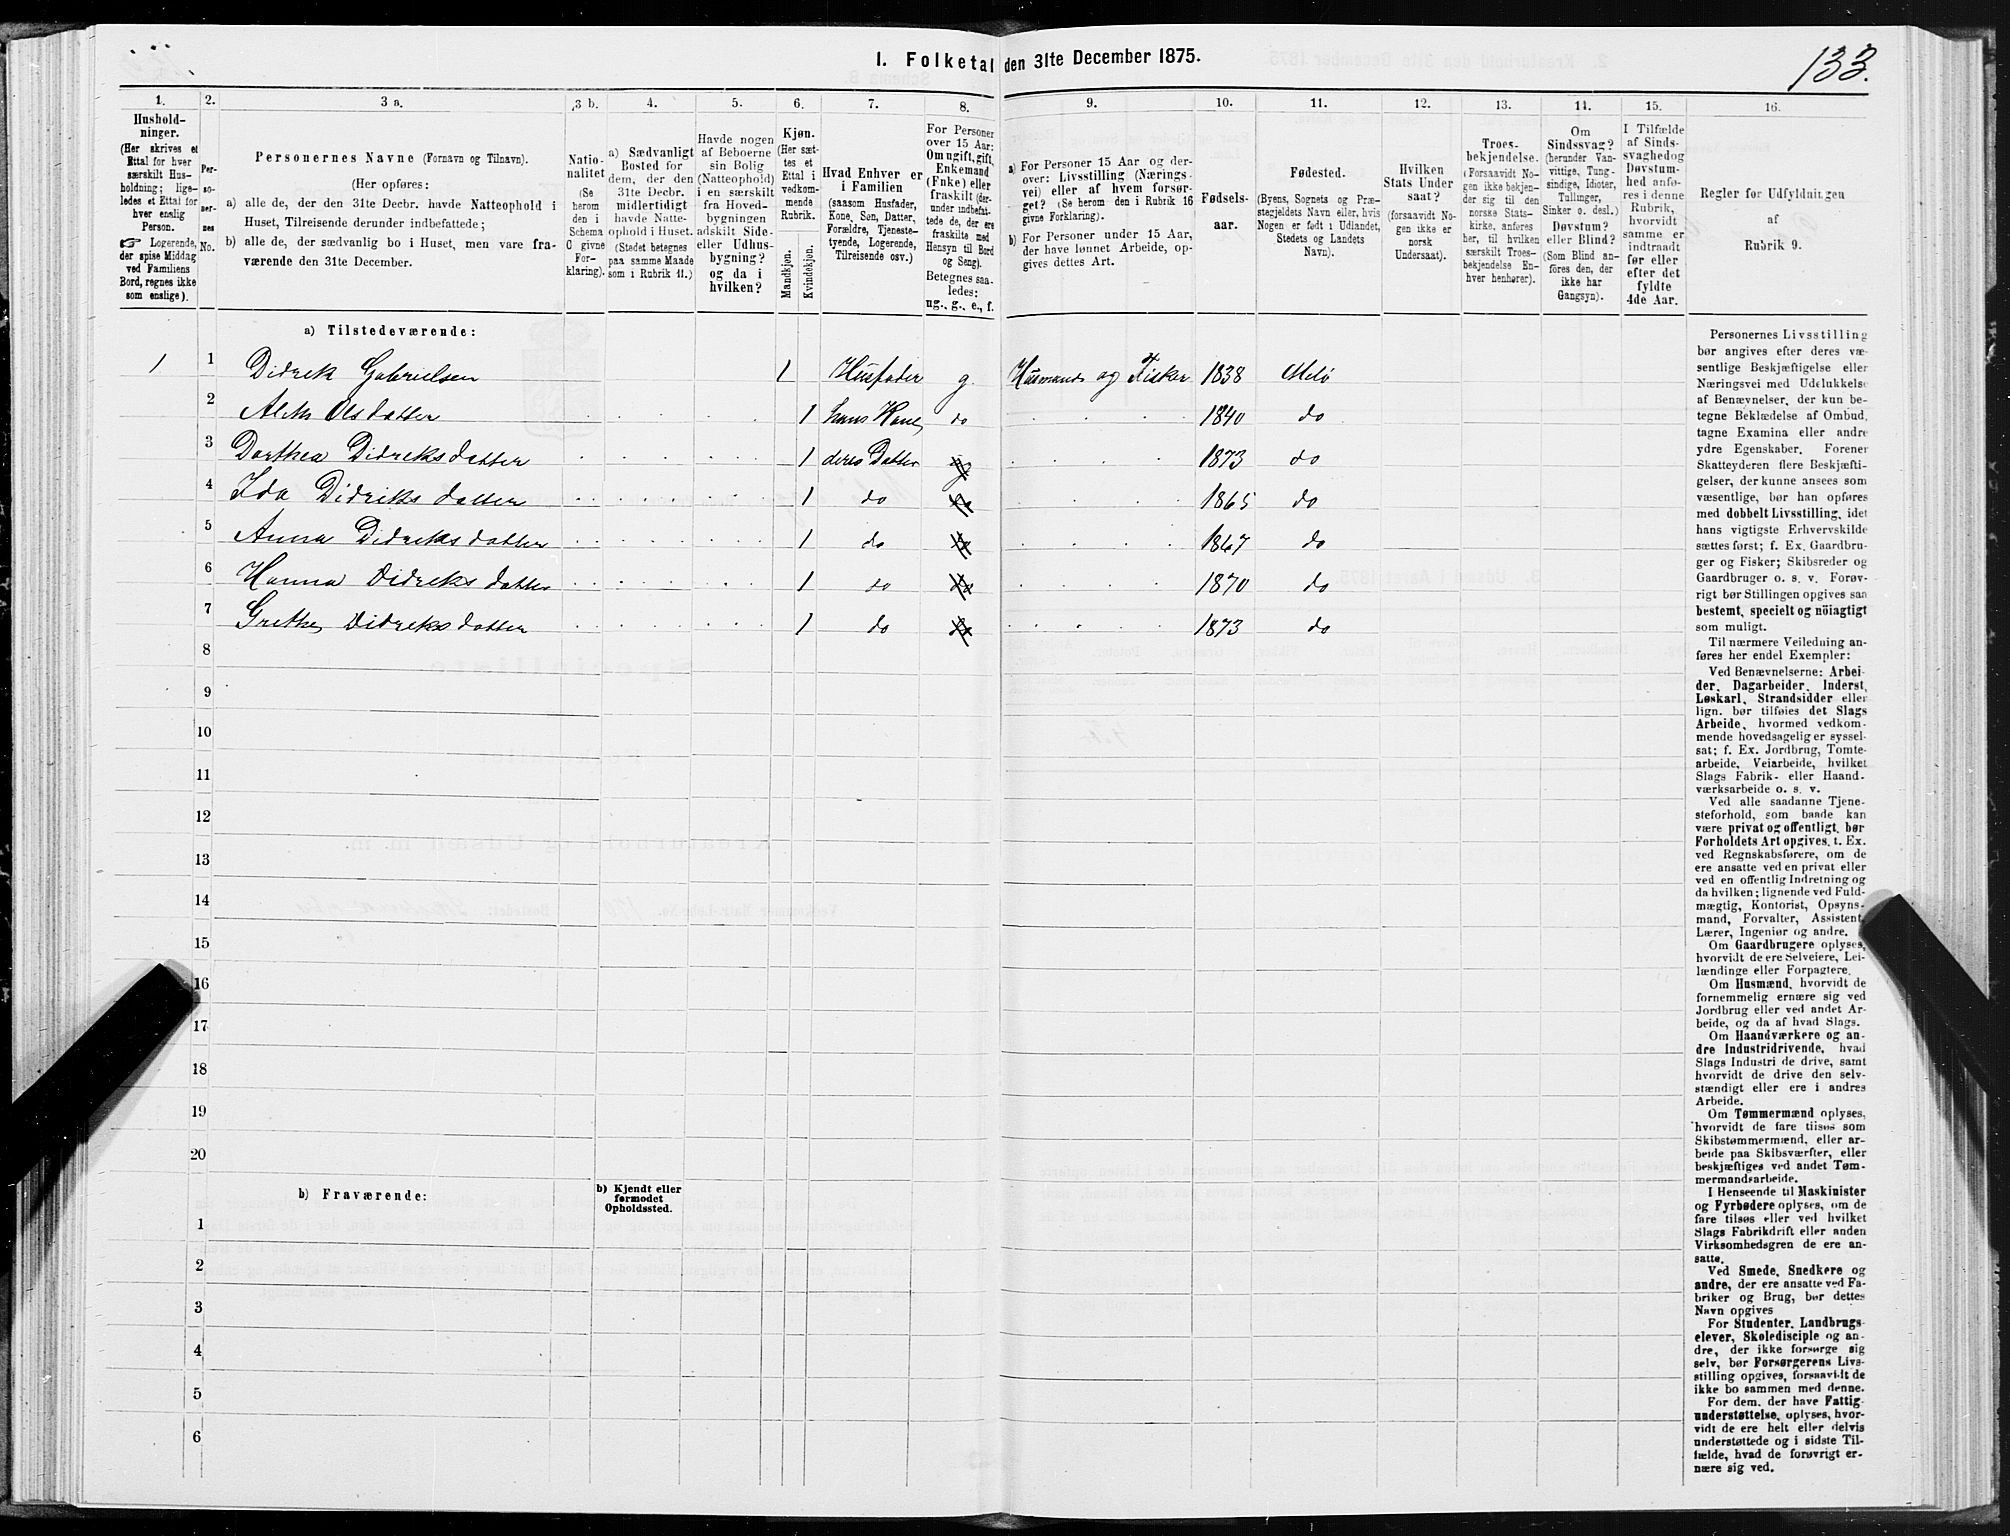 133.
I. Folketal den 31te December 1875.
1. 2. 3 a. 3 b. 4. 5. 6. 7. 8. 9. 10. 11. 12. 13. 14. 15. 16.
Hushold-
ninger.
(Her skrives et
Ettal for hver
særskilt Hus-
holdning; lige-
ledes et Ettal for
hver enslig
Person.
☞ Logerende,
der spise Middag
ved Familiens
Bord, regnes ikke
som enslige).
Per-
so-
ner-
nes
No.
Personernes Navne (Fornavn og Tilnavn).
(Her opføres:
a) alle de, der den 31te Decbr. havde Natteophold i
Huset, Tilreisende derunder indbefattede;
b) alle de, der sædvanlig bo i Huset, men vare fra-
værende den 31te December.
Natio-
nalitet
(Se
herom
den i
Schema
C givne
For-
klaring).
a) Sædvanligt
Bosted for
dem, der den
31te Decbr.
midlertidigt
havde Natte-
ophold i Huset.
(Stedet betegnes
paa samme Maade
som i Rubrik 11.)
Havde nogen
af Beboerne
sin Bolig
(Natteophold)
i en særskilt
fra Hoved-
bygningen
adskilt Side-
eller Udhus-
bygning?
og da i
hvilken?
Kjøn.
(Her sæt-
tes et
Ettal i
vedkom-
mende
Rubrik.
Mandkjøn.
Kvindekjøn.
Hvad Enhver er
i Familien
(saasom Husfader,
Kone, Søn, Datter,
Forældre, Tjeneste-
tyende, Logerende,
Tilreisende osv.)
For Personer
over 15 Aar:
Om ugift, gift,
Enkemand
(Enke) eller
fraskilt (der-
under indbefat-
tede de, der ere
fraskilte med
Hensyn til Bord
og Seng).
Betegnes saa-
ledes:
ug., g., e., f.
a) For Personer 15 Aar og der-
over: Livsstilling (Nærings-
vei) eller af hvem forsør-
get? (Se herom den i Rubrik 16
givne Forklaring).
b) For Personer under 15 Aar,
der have lønnet Arbeide, op-
gives dettes Art.
Fødsels-
aar.
Fødested.
(Byens, Sognets og Præ-
stegjeldets Navn eller, hvis
Nogen er født i Udlandet,
Stedets og Landets
Navn).
Hvilken
Stats Under
saat?
(forsaavidt No-
gen ikke er
norsk
Undersaat).
Troes-
bekjendelse.
(Forsaavidt No-
gen ikke bekjen-
der sig til den
norske Stats-
kirke, anføres
her, til hvilken
særskilt Troes-
bekjendelse En-
hver henhører).
Om
Sindssvag?
(herunder Van-
vittige, Tung-
sindige, Idioter,
Tullinger,
Sinker o. desl.)
Døvstum?
eller Blind?
(Som Blind an-
føres den, der
ikke har
Gangsyn).
I Tilfælde
af Sinds-
svaghed og
Døvstum-
hed anfø-
res i denne
Rubrik,
hvorvidt
samme er
indtraadt
før eller
efter det
fyldte
4de Aar.
Regler for Udfyldningen
af
Rubrik 9.
a) Tilstedeværende:
1 1 Didrek Gabrielsen 1 Husfader g. Husmand og Fisker 1838 Melø
2 Aleth Olsdatter 1 hans Kone do 1840 do
3 Dorthea Didreksdatter 1 deres Datter ug 1873 do
4 Ida Didriksdatter 1 do do 1865 do
5 Anna Didreksdatter 1 do do 1867 do
6 Hanna Didreksdatter 1 do do 1870 do
7 Grethe Didreksdatter 1 do do 1873 do
8
9
10
11
12
13
14
15
16
17
18
19
20
b) Fraværende:
b) Kjendt eller
formodet
Opholdssted.
1
2
3
4
5
6
Personernes Livsstilling
bør angives efter deres væ-
sentlige Beskjæftigelse eller
Næringsvei med Udelukkelse
af Benævnelser, der kun be-
tegne Beklædelse af Ombud,
tagne Examina eller andre
ydre Egenskaber. Forener
Skatteyderen flere Beskjæfti-
gelser, der kunne ansees som
væsentlige, bør han opføres
med dobbelt Livsstilling, idet
hans vigtigste Erhvervskilde
sættes først; f. Ex. Gaardbru-
ger og Fisker; Skibsreder og
Gaardbruger o. s. v. Forøv-
rigt bør Stillingen opgives saa
bestemt, specielt og nöiagtigt
som muligt.
Til nærmere Veiledning an-
føres her endel Exempler:
Ved Benævnelserne: Arbei-
der, Dagarbeider, Inderst,
Løskarl, Strandsidder eller
lign. bør tilføies det Slags
Arbeide, hvormed vedkom-
mende hovedsagelig er syssel-
sat; f. Ex. Jordbrug, Tomte-
arbeide, Veiarbeide, hvilket
Slags Fabrik- eller Haand-
værksarbeide o. s. v.
Ved alle saadanne Tjene-
steforhold, som baade kan
være privat og offentligt, bør
Forholdets Art opgives, t. Ex.
ved Regnskabsførere, om de
ere ansatte ved en privat eller
ved en offentlig Indretning og
da hvilken; lignende ved Fuld-
mægtig, Kontorist, Opsyns-
mand, Forvalter, Assistent,
Lærer, Ingeniør og andre.
Om Gaardbrugere oplyses,
hvorvidt de ere Selveiere, Lei-
lændinge eller Forpagtere.
Om Husmænd, hvorvidt de
fornemmelig ernære sig ved
Jordbrug eller ved andet Ar-
beide, og da af hvad Slags.
Om Haandværkere og an-
dre Industridrivende, hvad
Slags Industri de drive, samt
hvorvidt de drive den selv-
stændigt eller ere i andres
Arbeide.
Om Tømmermænd oplyses,
hvorvidt de fare tilsøs som
Skibstømmermænd, eller ar-
beide paa Skibsværfter, eller
beskjæftiges ved andet Tøm-
mermandsarbeide.
I Henseende til Maskinister
og Fyrbødere oplyses, om de
fare tilsøs eller ved hvilket
Slags Fabrikdrift eller anden
Virksomhedsgren de ere an-
satte.
Ved Smede, Snedkere og
andre, der ere ansatte ved Fa-
briker og Brug, bør dettes
Navn opgives
For Studenter, Landbrugs-
elever, Skoledisciple og an-
dre, der ikke forsørge sig
selv, bør Forsørgerens Livs-
stilling opgives, forsaavidt de
ikke bo sammen med denne.
For dem, der have Fattig-
understøttelse, oplyses, hvor-
vidt de ere helt eller delvis
understøttede og i sidste Til-
fælde, hvad de forøvrigt er-
nære sig ved.